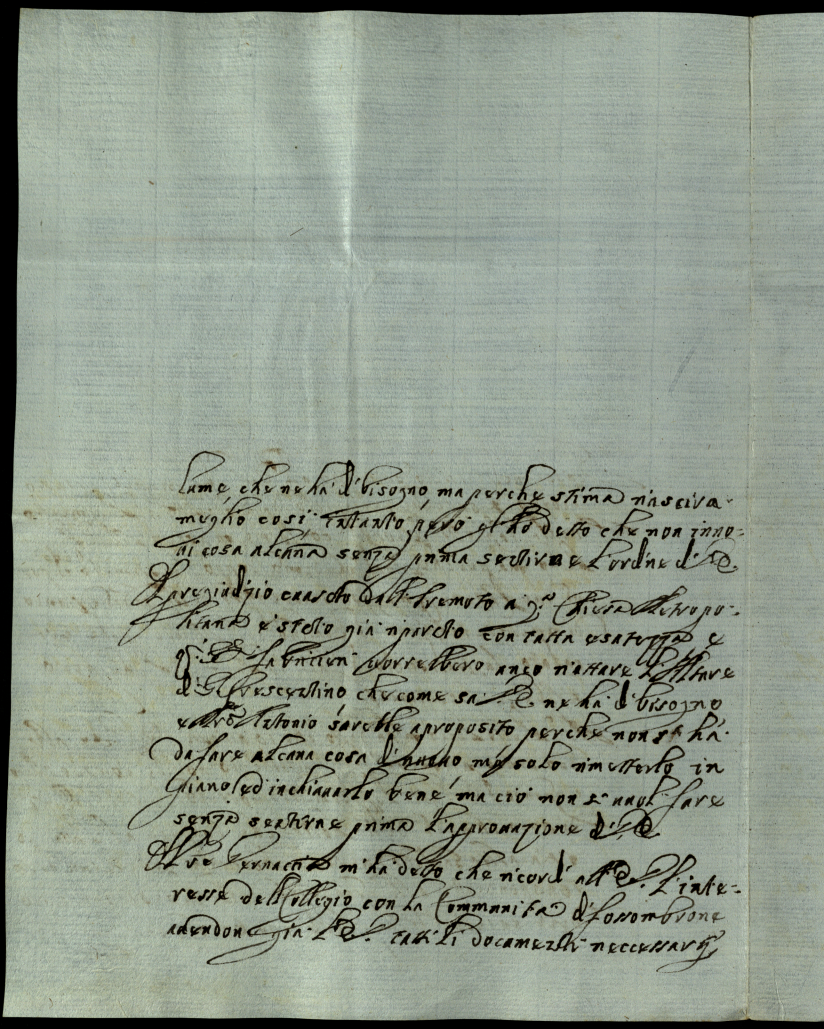 lume, che ne hà di bisogno, ma perche stima riuscirà
meglio così intanto però gl'hò detto che non inno=
vi cosa alcuna senza prima sentirne l'ordine di V.S.
Il pregiudizio causato dall'Tremoto a q.ta Chiesa Metropo=
litana è stato già riparato con tutta esatezza, e
q.ti SS.ri fabricieri vorrebbero anco riattare l'Altare
di S. Crescentino che come sà V.S. ne hà di bisogno
e Antonio sarebbe a proposito perche non si hà
da fare alcuna cosa di nuovo mà solo rimetterlo in
piano, ed inchiavarlo bene, ma ciò non si vuol fare
senza sentirne prima l'approvazione di V.S.
Il Sig.re m'ha detto che ricordi all' V.S. l'inte=
resse dell Collegio con la Communità di fossombrone
avendone già V.S. tutti li documenti neccessarij